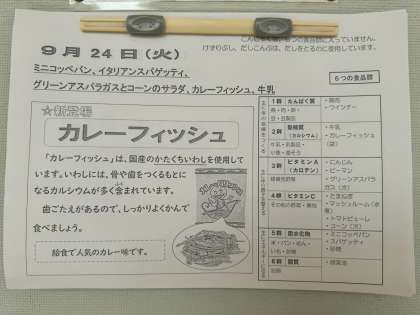 けずりぶし、だしこんぶは、だしをとるのに使用しています。
9月24日(火)
ミニコッペパン、イタリアンスパゲッティ、
グリーンアスパラガスとコーンのサラダ、カレーフィッシュ、牛乳
☆新登場
カレーフィッシュ
「カレーフィッシュ」は、国産のかたくちいわしを使用して
います。いわしには、骨や歯をつくるもとに
なるカルシウムが多く含まれています。
歯ごたえがあるので、しっかりよくかんで
食べましょう。
給食で人気のカレー味です。
6つの食品群
1群 たんぱく質
・豚肉
・ウインナー
2群 無機質
(カルシウム)
・牛乳
・カレーフィッシュ
(袋)
3群 ビタミンA
(カロテン)
緑黄色野菜
・にんじん
・ピーマン
・グリーンアスパラ
ガス(冷)
4群 ビタミンC
・たまねぎ
・マッシュルーム(水
煮)
・トマトピューレ
・コーン(冷)
5群 炭水化物
米・パン・めん・
いも・砂糖
・ミニコッペパン
・スパゲッティ
・砂糖
6群 脂質
油脂